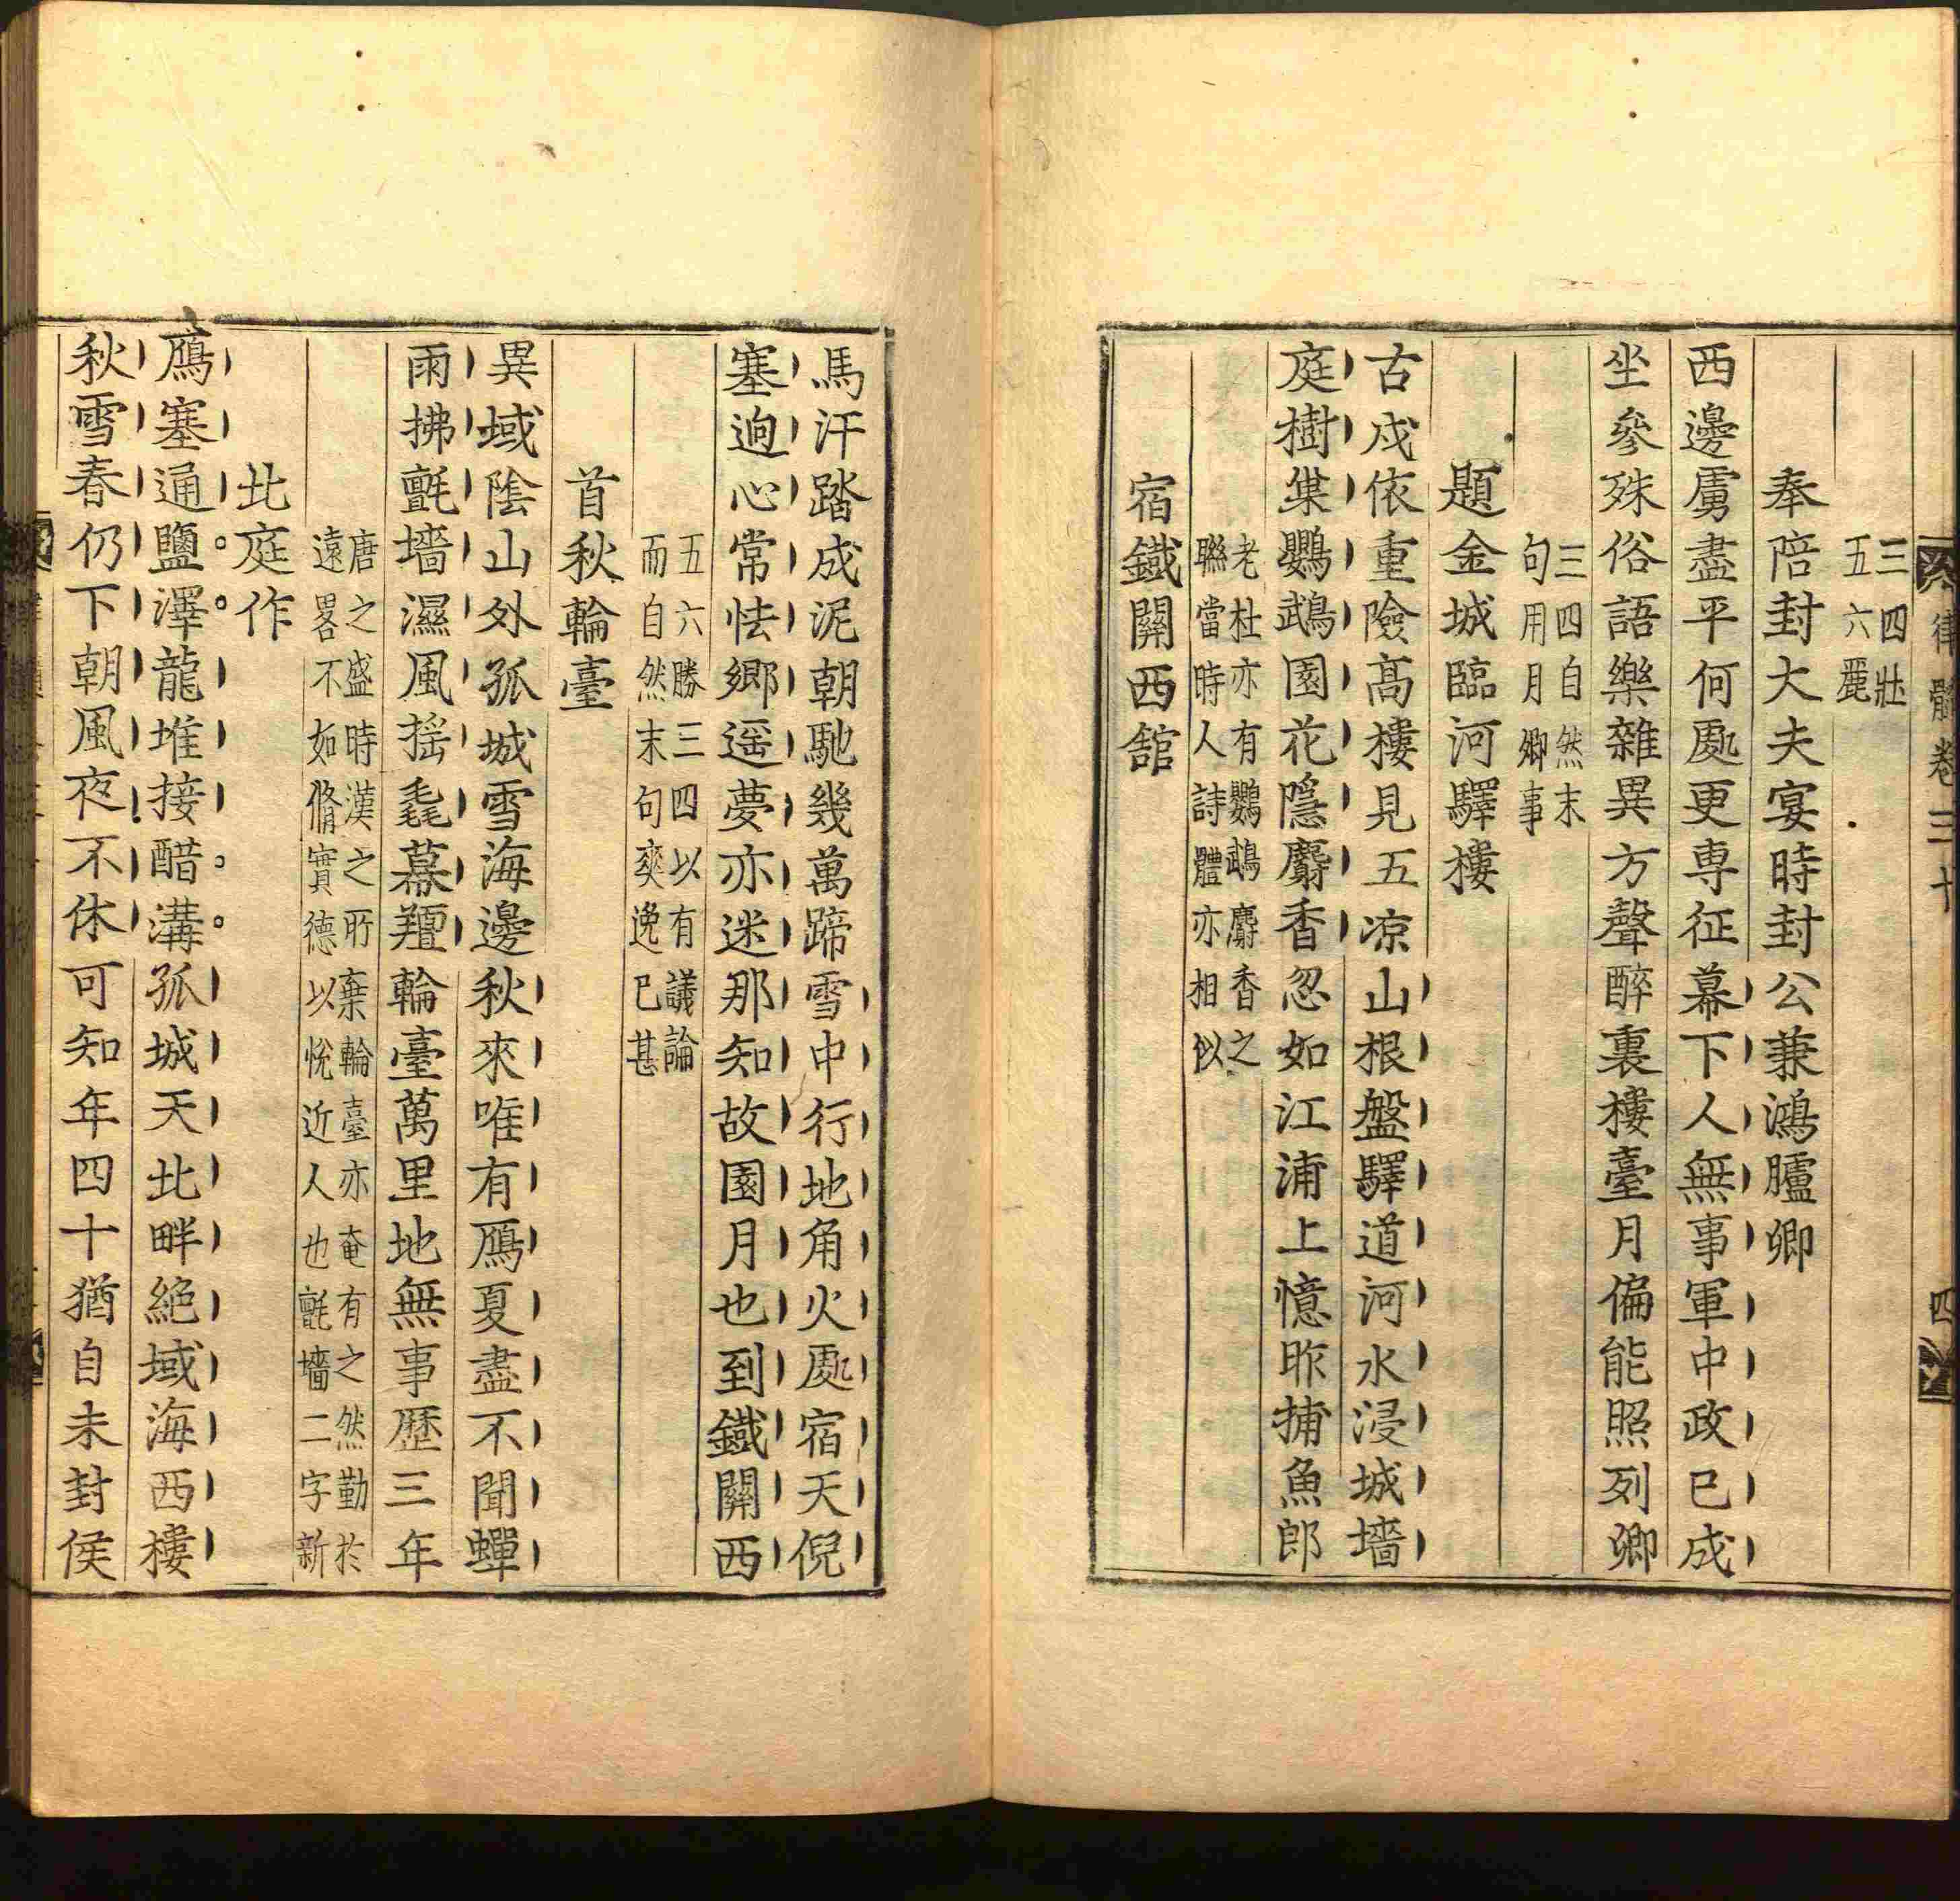 律髓卷三十 四
三四壯
五六麗
奉陪封大夫宴時封公兼鴻臚卿
西邊虜盡平何處更専征幕下人無事軍中政已成
坐參殊俗語樂雜異方聲醉裏樓臺月偏能照列卿
三四自然末
句用月卿事
題金城臨河驛樓
古戍依重險髙樓見五凉山根盤驛道河水浸城墻
庭樹巢鸚鵡園花隠麝香忽如江浦上憶昨捕魚郎
老杜亦有鸚鵡麝香之
聮當時人詩體亦相似
宿鐵關西舘
馬汗踏成泥朝馳幾萬蹄雪中行地角火處宿天倪
塞逈心常怯鄉遥夢亦迷那知故園月也到鐵關西
五六勝三四以有議論
而自然末句爽逸已甚
首秋輪臺
異域陰山外孤城雪海邊秋來唯有鴈夏盡不聞蟬
雨拂氈墻濕風揺毳幕羶輪臺萬里地無事歷三年
唐之盛時漢之所棄輪臺亦奄有之然勤於
遠畧不如脩實德以恱近人也氈墻二字新
北庭作
鴈塞通鹽澤龍堆接醋溝孤城天北畔絶域海西樓
秋雪春仍下朝風夜不休可知年四十猶自未封侯